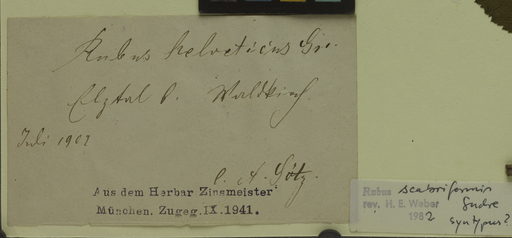 Rubus helveticus Gr.
Elztal b. Waldkirch.
Juli 1902
A. Götz.
Aus dem Herbar Zinsmeister
München. Zugeg.IX.1941.
Rubus scabriformis
Sudre
rev. H. E. Weber
1982 syntypus?